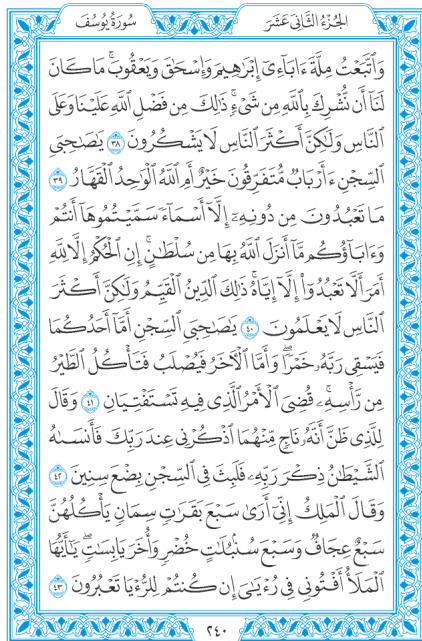 الجزء الثاني عشر
سورة يوسف
وَاتَّبَعْتُ مِلَّةَ ءَابَآءِىٓ إِبْرَٰهِيمَ وَإِسْحَٰقَ وَيَعْقُوبَ ۚ مَا كَانَ
لَنَآ أَن نُّشْرِكَ بِاللَّهِ مِن شَىْءٍ ۚ ذَٰلِكَ مِن فَضْلِ اللَّهِ عَلَيْنَا وَعَلَى
النَّاسِ وَلَٰكِنَّ أَكْثَرَ النَّاسِ لَا يَشْكُرُونَ ٣٨ يَٰصَٰحِبَىِ
السِّجْنِ ءَأَرْبَابٌ مُّتَفَرِّقُونَ خَيْرٌ أَمِ اللَّهُ الْوَٰحِدُ الْقَهَّارُ ٣٩
مَا تَعْبُدُونَ مِن دُونِهِۦٓ إِلَّآ أَسْمَآءً سَمَّيْتُمُوهَآ أَنتُمْ
وَءَابَآؤُكُم مَّآ أَنزَلَ اللَّهُ بِهَا مِن سُلْطَٰنٍ ۚ إِنِ الْحُكْمُ إِلَّا لِلَّهِ ۚ
أَمَرَ أَلَّا تَعْبُدُوٓا۟ إِلَّآ إِيَّاهُ ۚ ذَٰلِكَ الدِّينُ الْقَيِّمُ وَلَٰكِنَّ أَكْثَرَ
النَّاسِ لَا يَعْلَمُونَ ٤٠ يَٰصَٰحِبَىِ السِّجْنِ أَمَّآ أَحَدُكُمَا
فَيَسْقِى رَبَّهُۥ خَمْرًا ۖ وَأَمَّا الْـَٔاخَرُ فَيُصْلَبُ فَتَأْكُلُ الطَّيْرُ
مِن رَّأْسِهِۦ ۚ قُضِىَ الْأَمْرُ الَّذِى فِيهِ تَسْتَفْتِيَانِ ٤١ وَقَالَ
لِلَّذِى ظَنَّ أَنَّهُۥ نَاجٍ مِّنْهُمَا اذْكُرْنِى عِندَ رَبِّكَ فَأَنسَىٰهُ
الشَّيْطَٰنُ ذِكْرَ رَبِّهِۦ فَلَبِثَ فِى السِّجْنِ بِضْعَ سِنِينَ ٤٢
وَقَالَ الْمَلِكُ إِنِّىٓ أَرَىٰ سَبْعَ بَقَرَٰتٍ سِمَانٍ يَأْكُلُهُنَّ
سَبْعٌ عِجَافٌ وَسَبْعَ سُنۢبُلَٰتٍ خُضْرٍ وَأُخَرَ يَابِسَٰتٍ ۖ يَٰٓأَيُّهَا
الْمَلَأُ أَفْتُونِى فِى رُءْيَٰىَ إِن كُنتُمْ لِلرُّءْيَا تَعْبُرُونَ ٤٣
٢٤٠